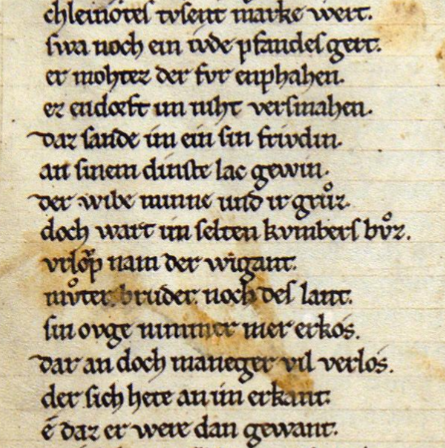 chleinotes tvsent marke wert.
swa noch ein ivde pfandes gert.
er mohtez der fvr enphahen.
ez endorft im niht versmahen.
daz sande im ein sin frivdin.
an sinem dinste lac gewin.
der wibe minne und ir grůz.
doch wart im selten kvmbers bůz.
vrlǒp nam der wigant.
můter. bruder. noch des lant.
sin ovge nimmer mer erkos.
dar an doch maneger vil verlos.
der sich hete an im erkant.
ê daz er were dan gewant.